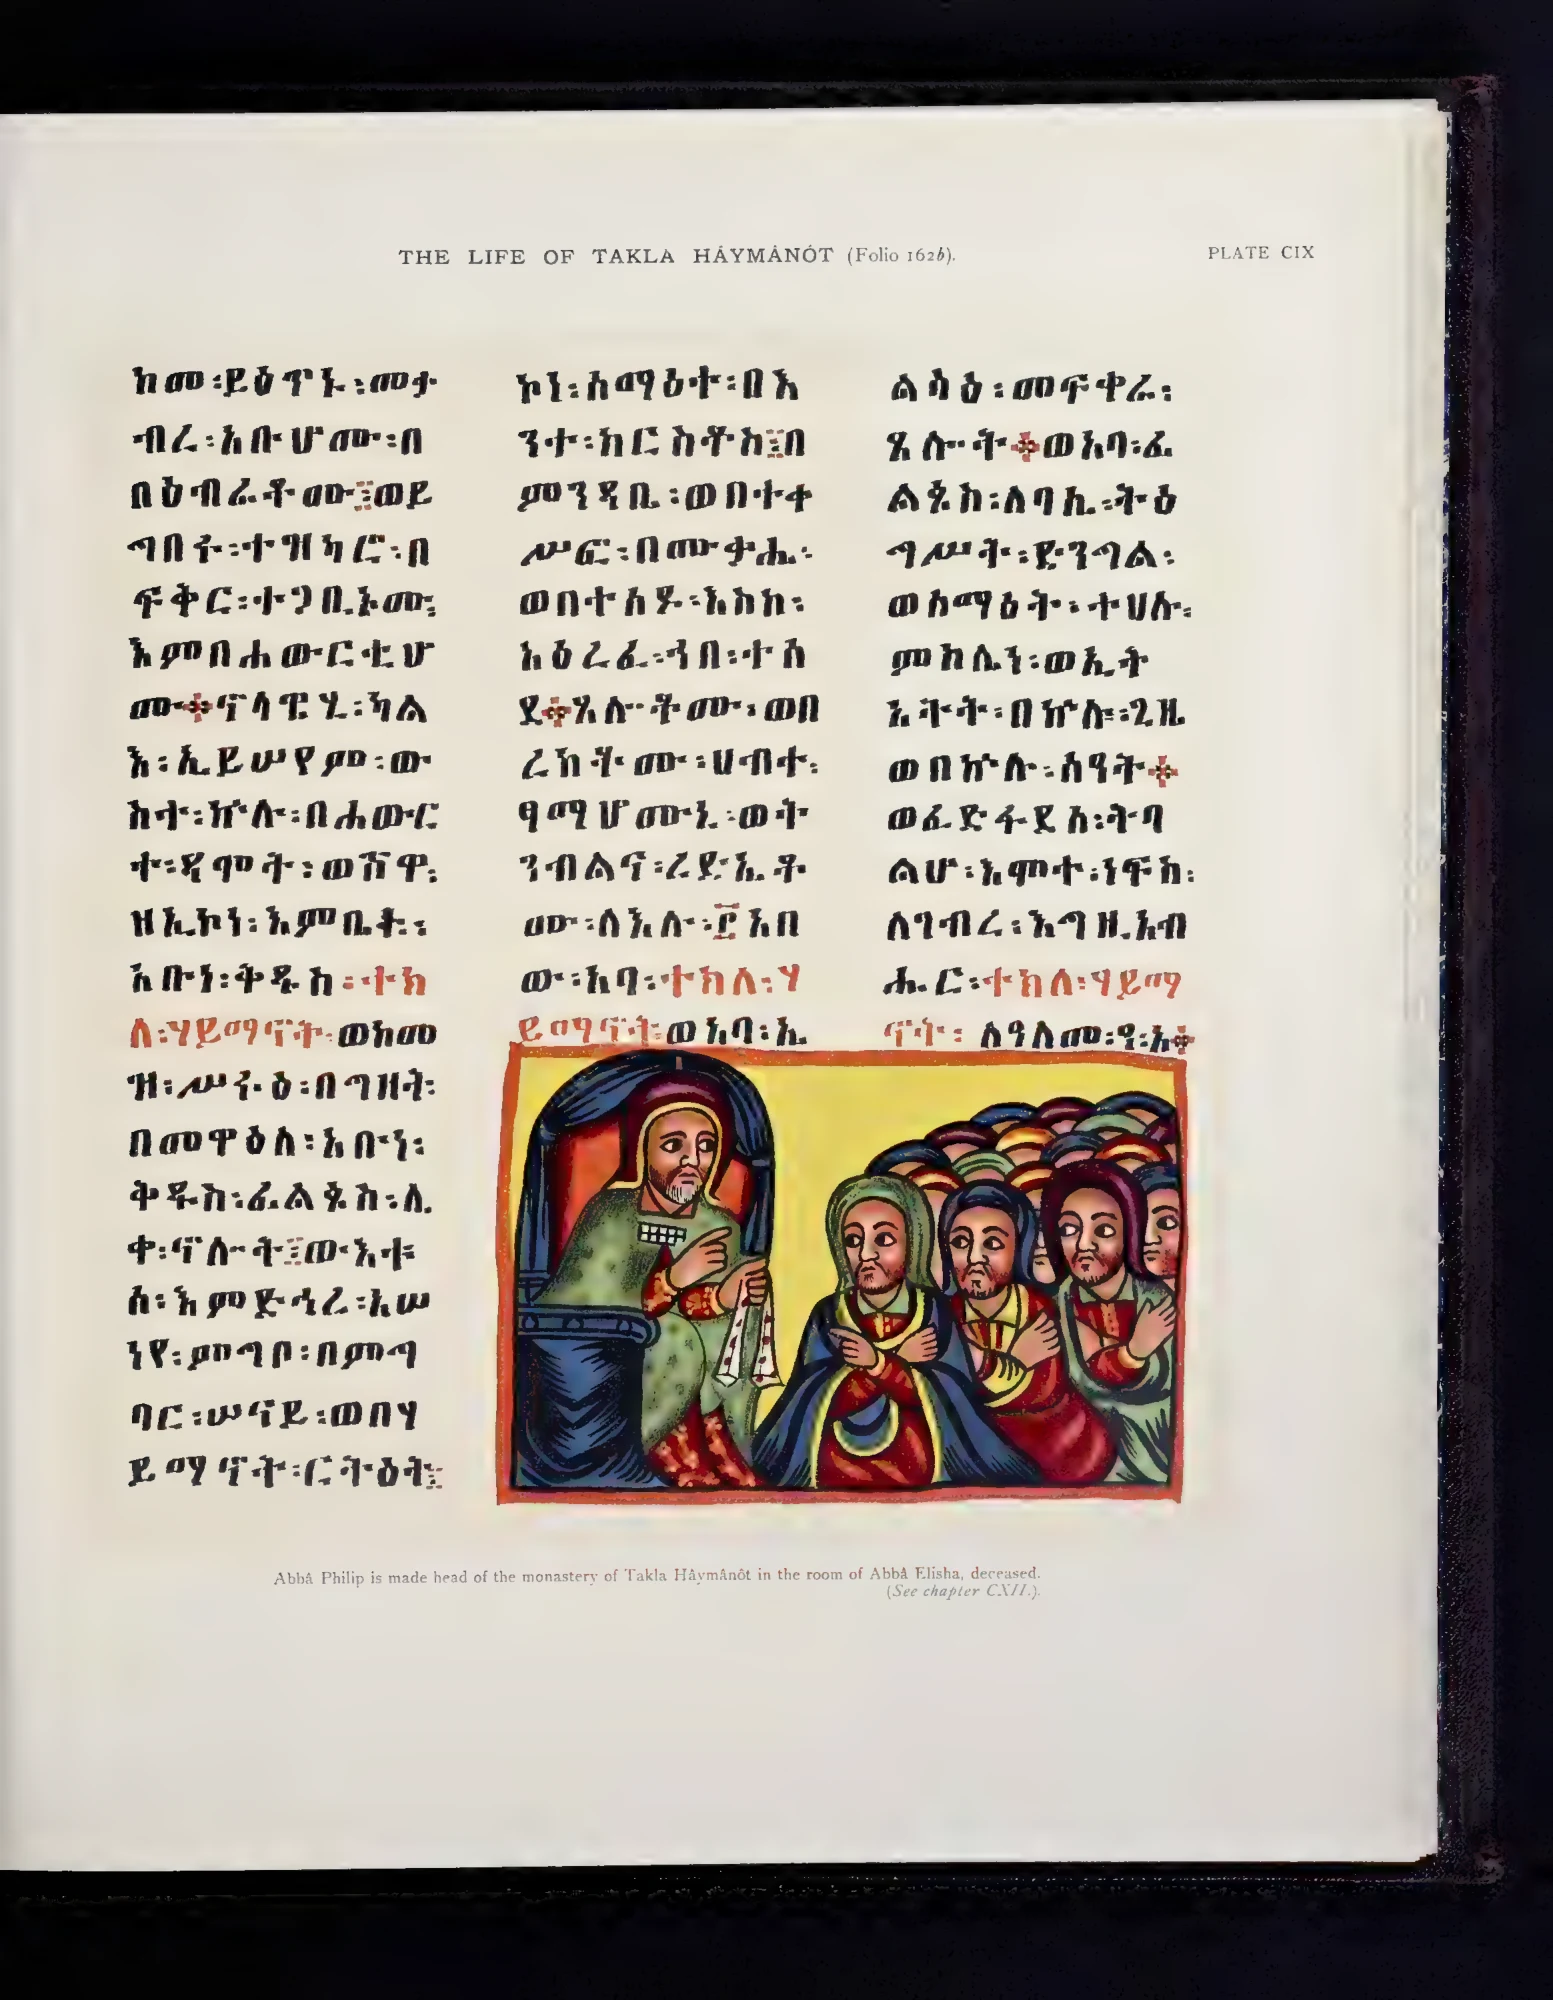 THE LIFE OF TAKLA HÂYMÂNÔT (Folio 162b).
PLATE CIX
ከመ፡ይዕጥኑ፡መታ
ብረ፡አቡሆሙ፡በ
በዕብሬቶሙ፤ወይ
ግበሩ፡ተዝካሮ፡በ
ፍቅር፡ተጋቢኦሙ፡
እምበሐውርቲሆ
ሙ።ናላዔሂ፡ካል
እ፡ኢይሠየም፡ው
ስተ፡ኵሉ፡በሐውር
ተ፡ዳሞት፡ወሸዋ፡
ዘኢኮነ፡እምቤቱ፡
አቡነ፡ቅዱስ፡ተክ
ለ፡ሃይማኖት፡ወከመ
ዝ፡ሥሩዕ፡በግዘት፡
በመዋዕለ፡አቡነ፡
ቅዱስ፡ፊልጶስ፡ሊ
ቀ፡ኖሎት፤ውእቱ
ሰ፡እምድኅረ፡አሠ
ነየ፡ምግቦ፡በምግ
ባር፡ሠናይ፡ወበሃ
ይማኖት፡ርትዕት፤
ኮነ፡ሰማዕተ፡በእ
ንተ፡ክርስቶስ፤በ
ምንዳቤ፡ወበተቀ
ሥፎ፡በሙቃሔ፡
ወበተሰዶ፡እስከ፡
አዕረፈ፡ኀበ፡ተሰ
ደ።ጸሎቶሙ፡ወበ
ረከቶሙ፡ሀብተ፡
ፃማሆሙኒ፡ወት
ንብልና፡ረድኤቶ
ሙ፡ለእሉ፡፫አበ
ው፡አባ፡ተክለ፡ሃ
ይማኖት፡ወአባ፡ኤ
ልሳዕ፡መፍቀሬ፡
ጸሎት።ወአባ፡ፊ
ልጶስ፡ለባሴ፡ትዕ
ግሥት፡ድንግል፡
ወሰማዕት፡ተሀሉ፡
ምስሌነ፡ወኢት
አትት፡በኵሉ፡ጊዜ
ወበኵሉ፡ሰዓት።
ወፈድፋደሰ፡ትባ
ልሆ፡እሞተ፡ነፍስ፡
ለገብረ፡እግዚአብ
ሔር፡ተክለ፡ሃይማ
ኖት፡ ለዓለመ፡ዓ፡አ።
Abbâ Philip is made head of the monastery of Takla Hâymânôt in the room of Abbâ Elisha, deceased.
(See chapter CXII.).